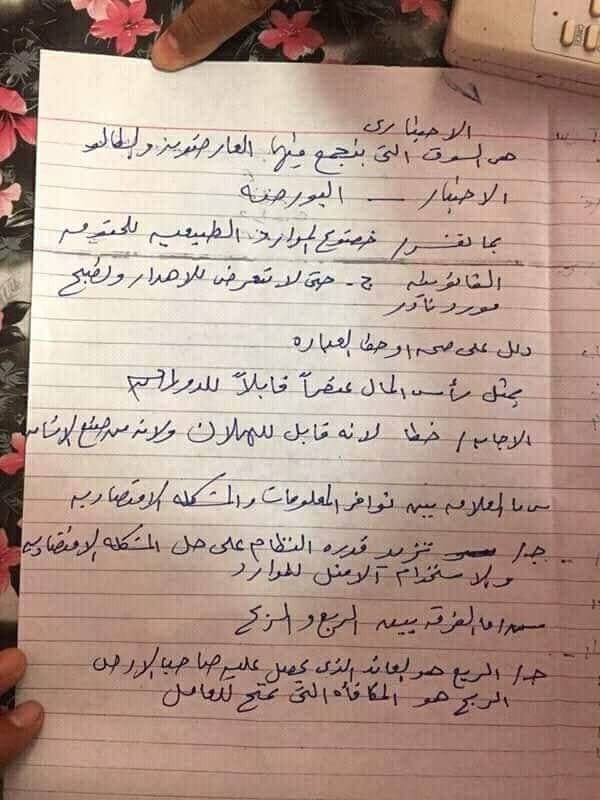 الاختيارى
هى السوق التى يتجمع فيها العارضون والطالبو
الاختيار — البورصة
بما تفسر / خضوع الموارد الطبيعيه للحقوق
القانونيه ج - حتى لا تتعرض للاهدار وتصبح
مورد نادر
دلل على صحه او خطا العباره
يمثل رأس المال عنصراً قابلاً للدوام
الاجابه / خطا لانه قابل للهلاك ولانه من صنع الانسان
س ما العلاقه بين توافر المعلومات والمشكله الاقتصاديه
جـ/ تزيد قدره النظام على حل المشكله الاقتصاديه
والاستخدام الامثل للموارد
س ما الفرق بين الريع و الربح
جـ/ الريع هو العائد الذى يحصل عليه صاحب الارض
الربح هو المكافأه التى تمنح للعامل